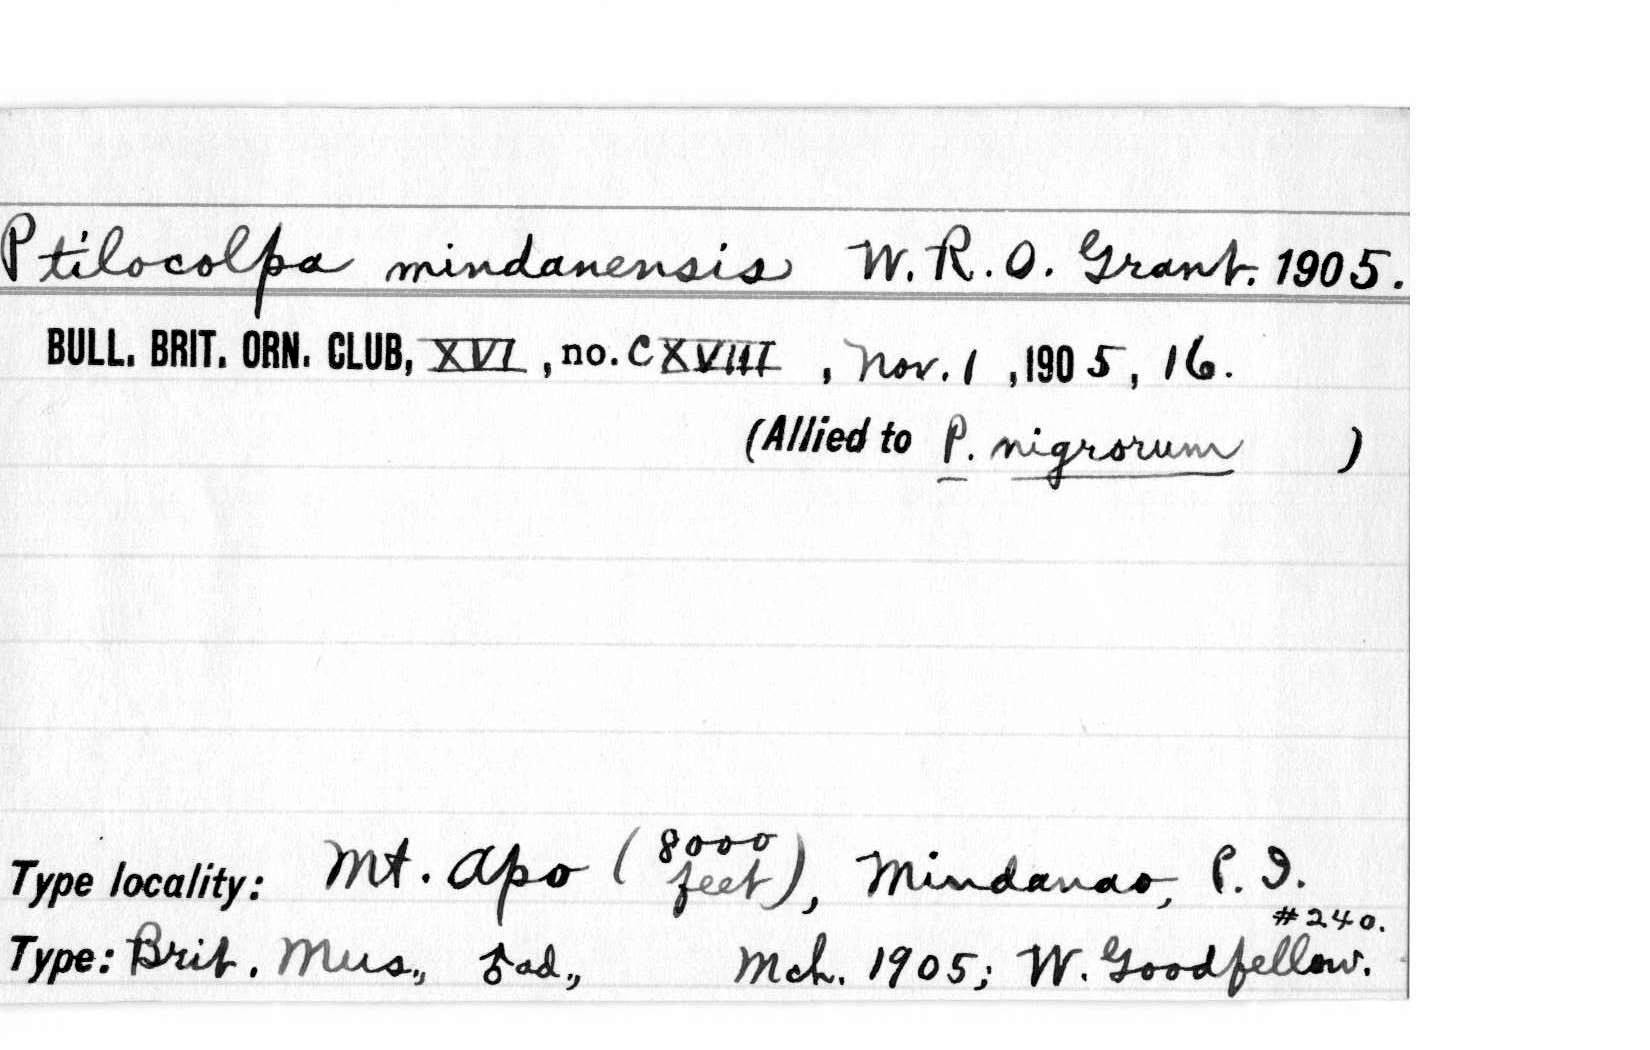 Ptilocolpa mindanensis W. R. O. Grant. 1905.
BULL. BRIT. ORN. CLUB, XVI, no. CXVIII, Nov. 1, 1905, 16.
(Allied to P. nigrorum )
Type locality: Mt. Apo (8000 feet), Mindanao, P. I.
#240.
Type: Brit. Mus., ad., Mch. 1905; W. Goodfellow.